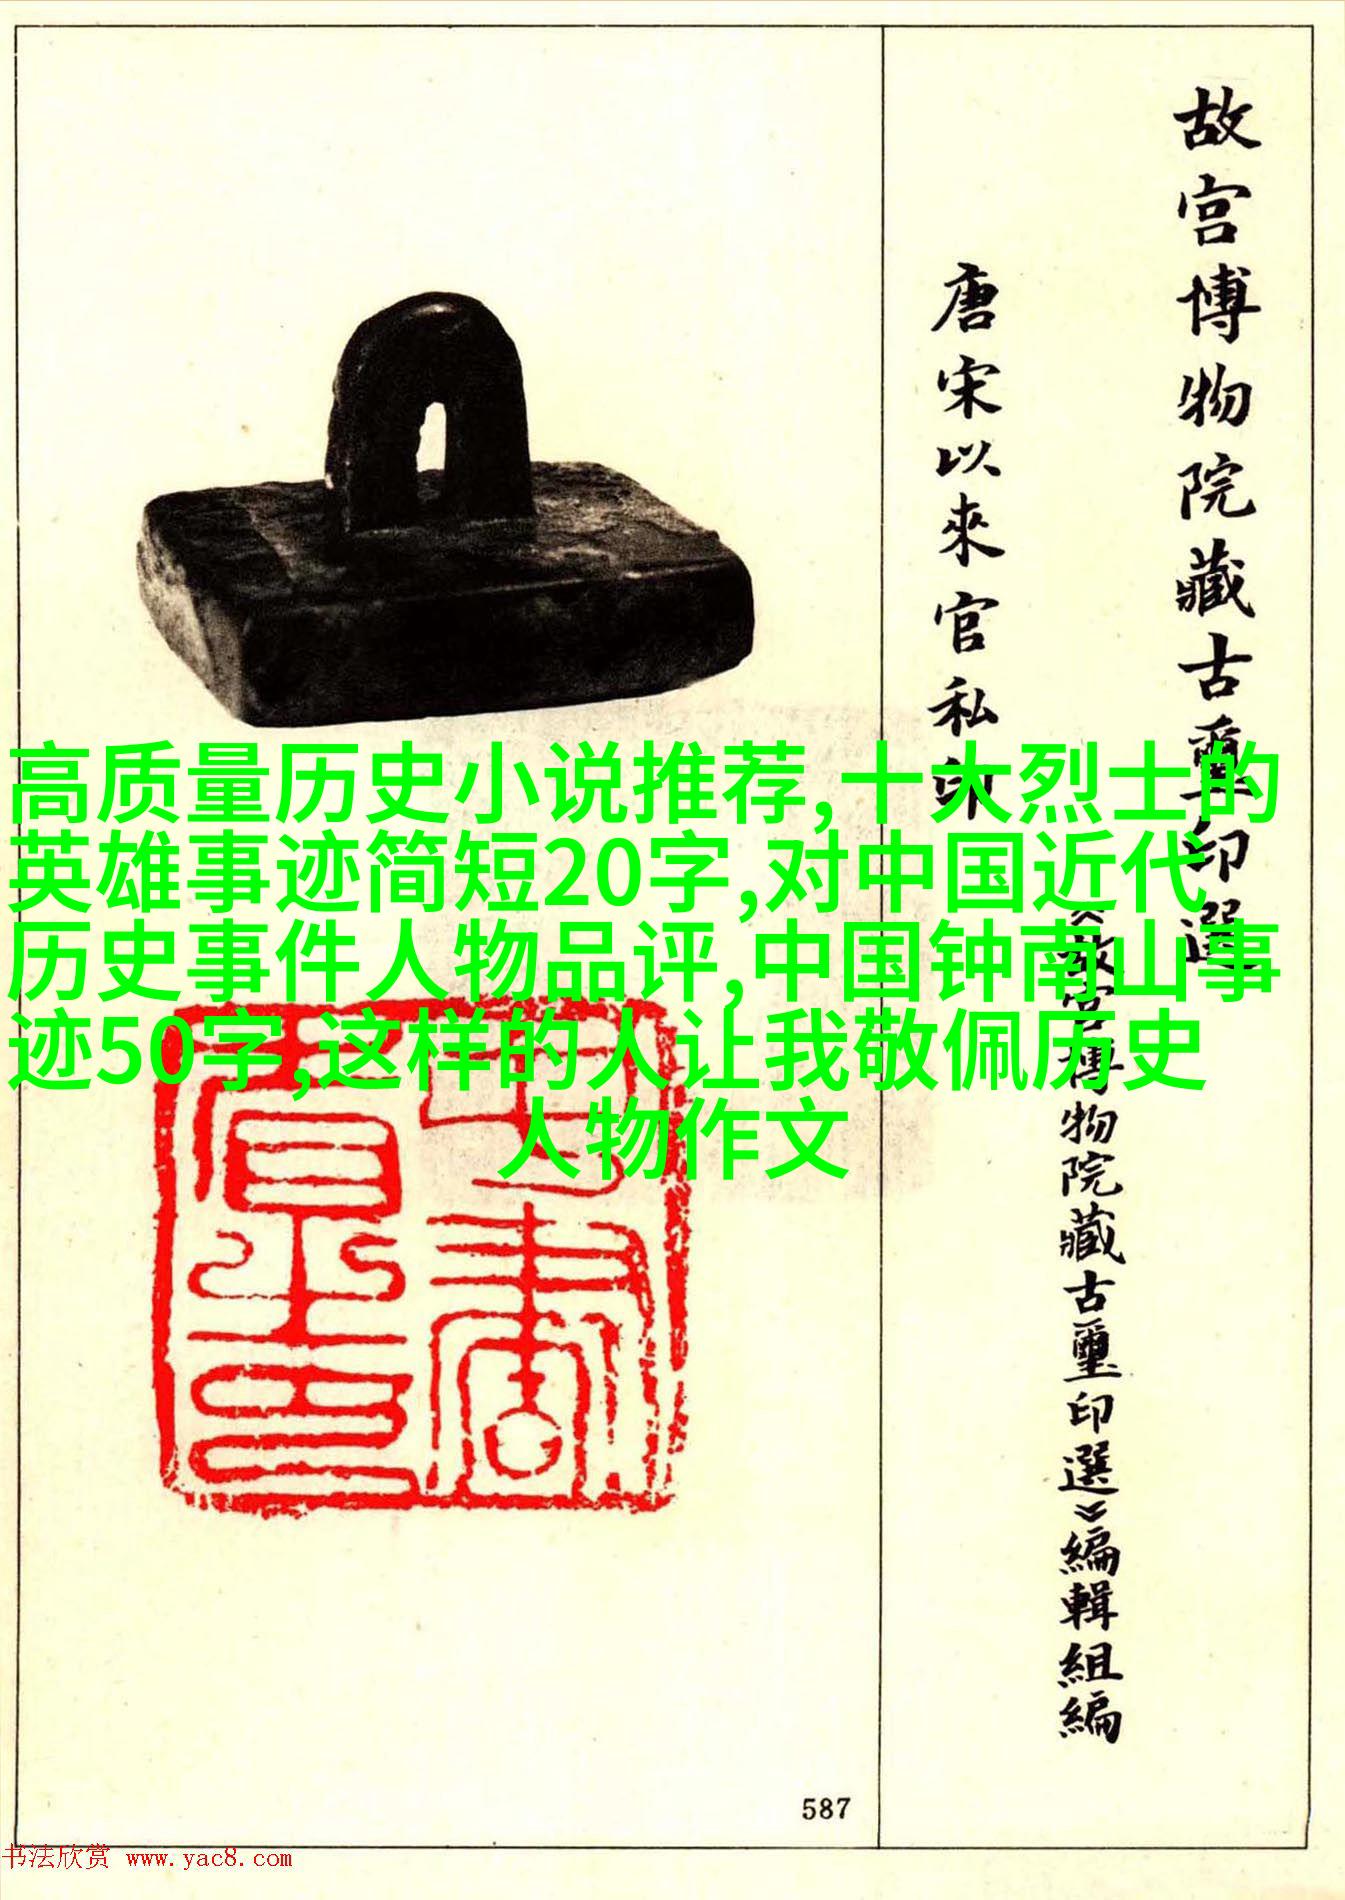 故宫博物院藏古璽印選
《故宫博物院藏古璽印選》編輯組編
唐宋以來官私印
高质量历史小说推荐,十大烈士的
英雄事迹简短20字,对中国近代
历史事件人物品评,中国钟南山事
迹50字,这样的人让我敬佩历史
人物作文
587
书法欣赏 www.yac8.com